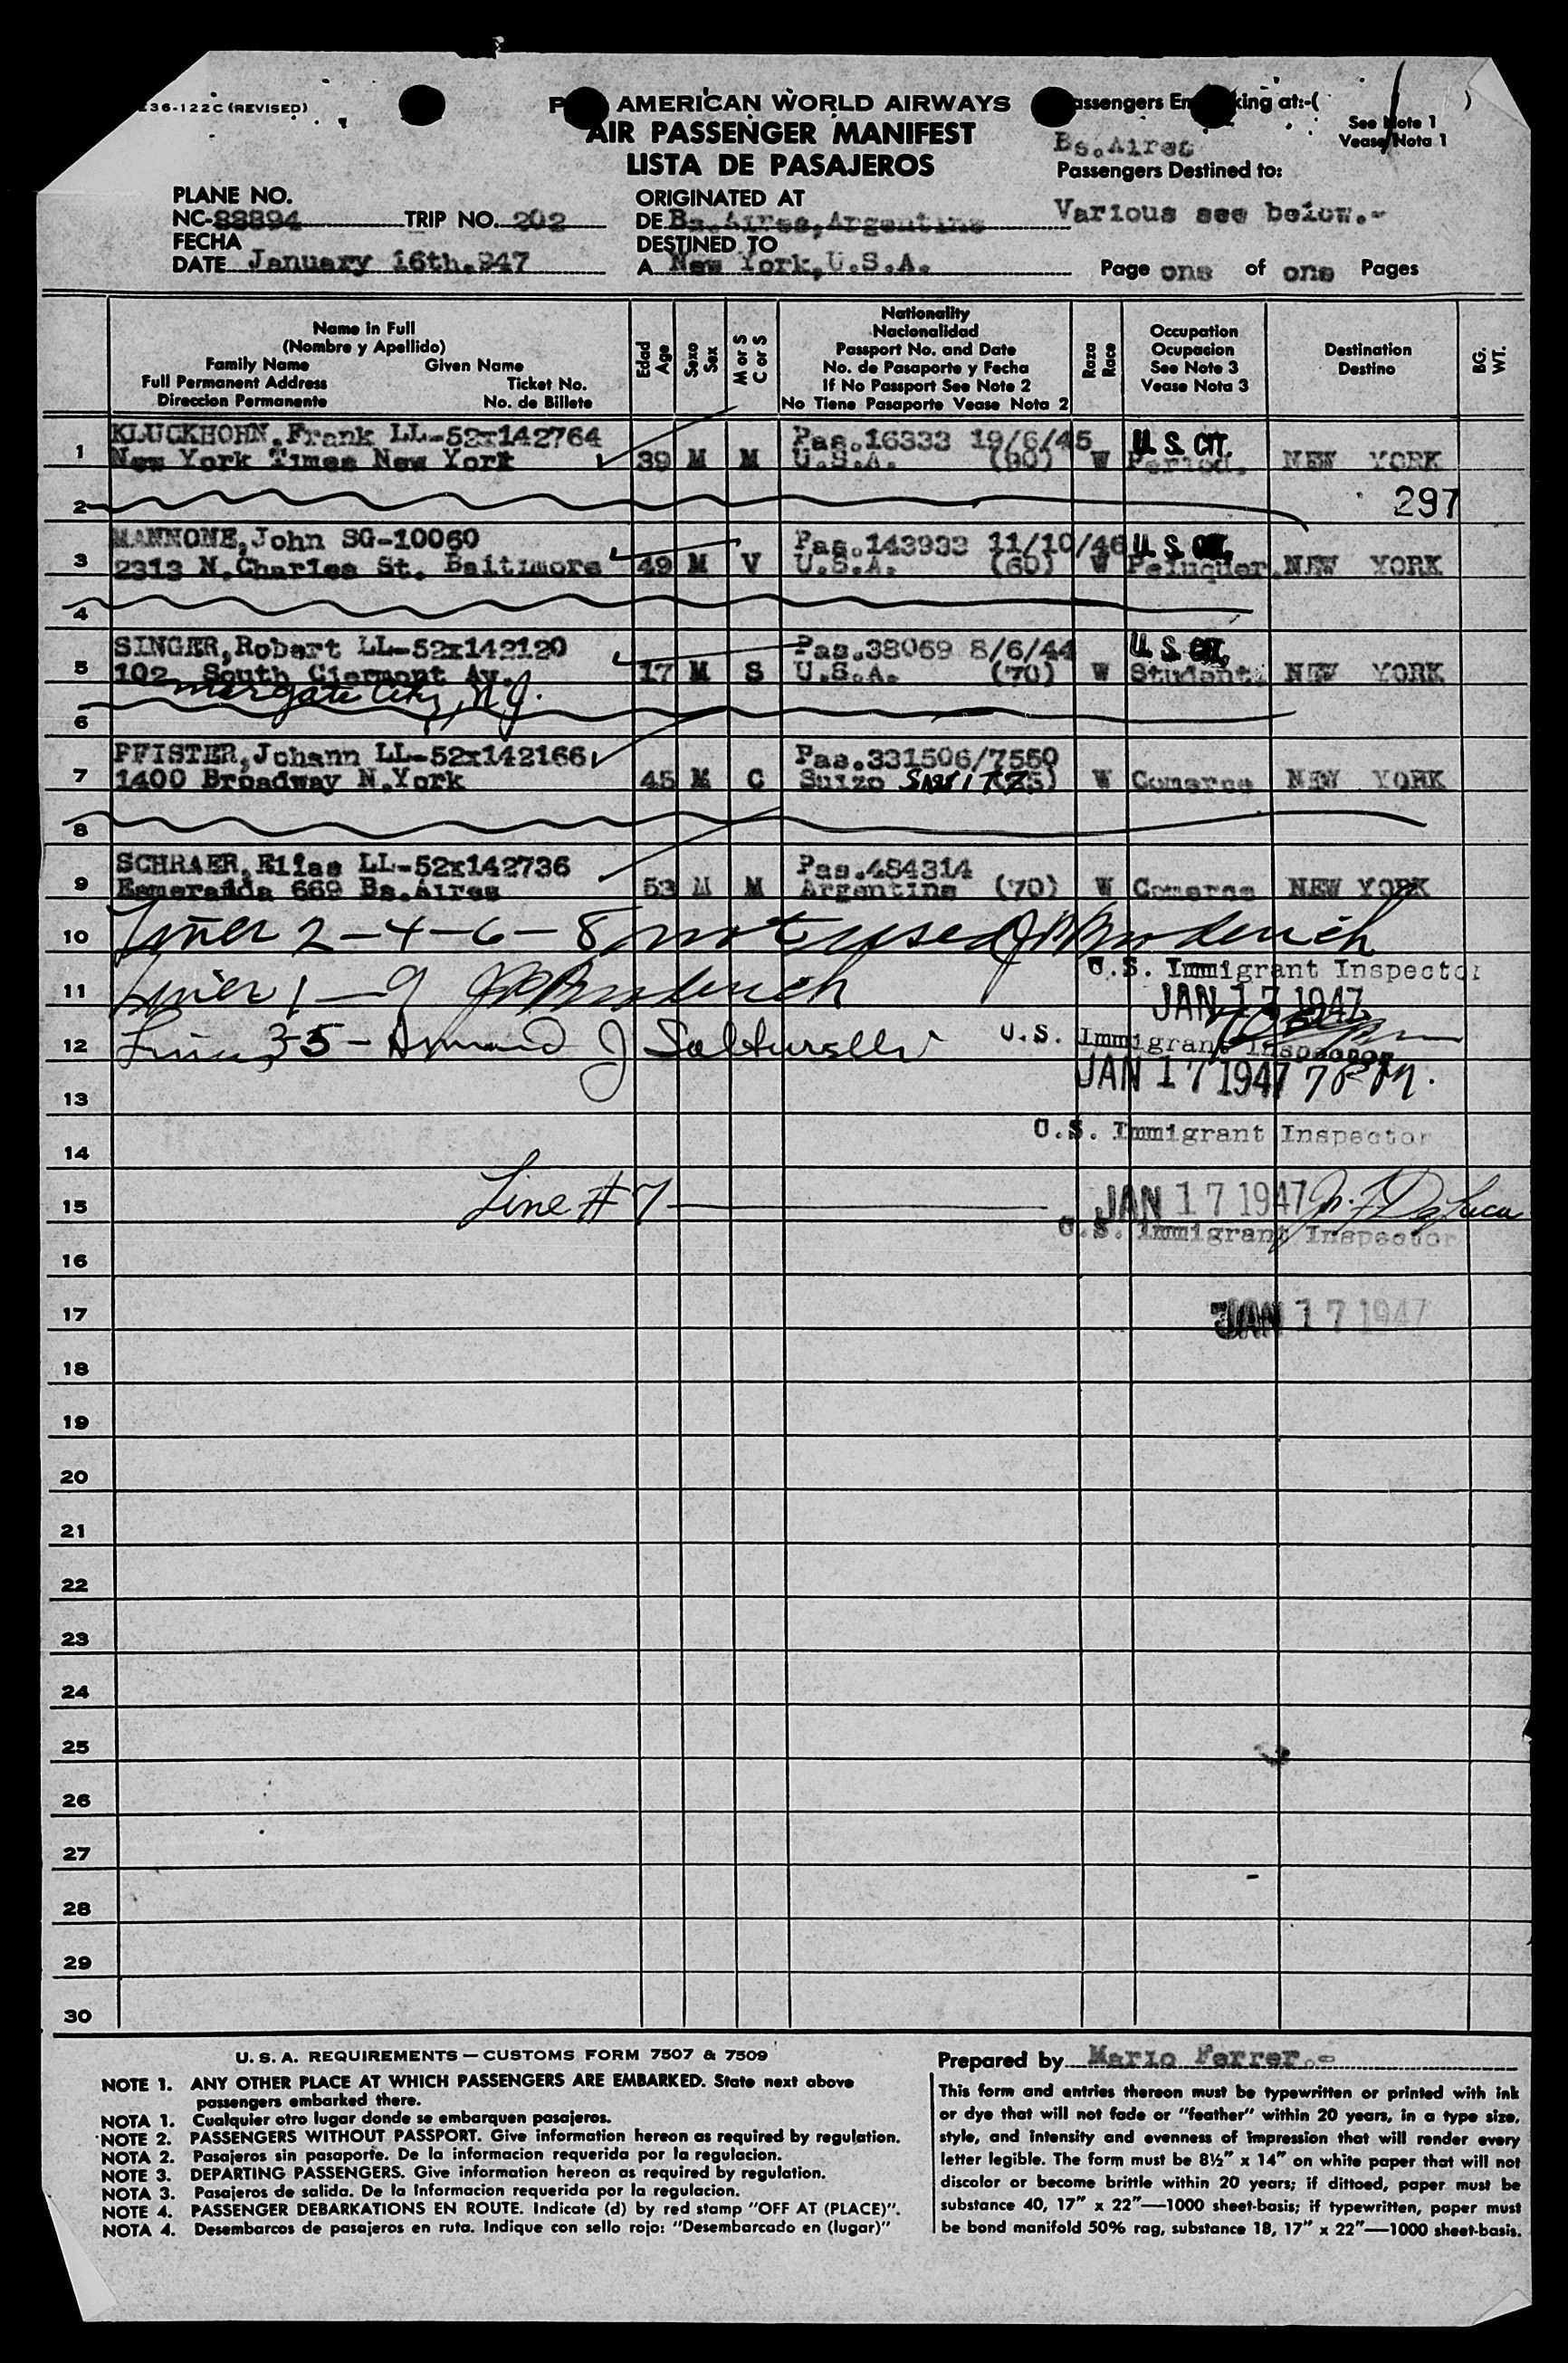 236-122C (REVISED)
AMERICAN WORLD AIRWAYS
AIR PASSENGER MANIFEST
LISTA DE PASAJEROS
See Note 1
Vease Nota 1
Bs.Aires
Passengers Destined to:
Various see below.-
PLANE NO.
NC-88894 TRIP NO. 202
FECHA
DATE January 16th.947
ORIGINATED AT
DE Bs.Aires,Argentina
DESTINED TO
A New York,U.S.A.
Page one of one Pages
Name in Full
(Nombre y Apellido)
Family Name Given Name
Full Permanent Address Ticket No.
Direccion Permanente No. de Billete
Edad
Age
Sexo
Sex
M or S
C or S
Nationality
Nacionalidad
Passport No. and Date
No. de Pasaporte y Fecha
If No Passport See Note 2
No Tiene Pasaporte Vease Nota 2
Raza
Race
Occupation
Ocupacion
See Note 3
Vease Nota 3
Destination
Destino
BG.
WT.
1 KLUCKHOHN,Frank LL-52x142764 Pas.16333 19/6/45 U. S. CIT.
New York Times New York 39 M M U.S.A. (90) W Period. NEW YORK
2 297
3 MANNONE,John SG-10060 Pas.143933 11/10/46 U. S. CIT.
2313 N.Charles St. Baltimore 49 M V U.S.A. (60) W Peluquer. NEW YORK
4
5 SINGER,Robert LL-52x142120 Pas.38069 8/6/44 U. S. CIT.
102 South Clermont Av. 17 M S U.S.A. (70) W Student. NEW YORK
Margate City, N.J.
6
7 PFISTER,Johann LL-52x142166 Pas.331506/7550
1400 Broadway N.York 45 M C Suizo SWITZ W Comerce NEW YORK
8
9 SCHRAER,Elias LL-52x142736 Pas.484314
Esmeralda 669 Bs.Aires 53 M M Argentina (70) W Comerce NEW YORK
10 Lines 2-4-6-8 not used
U.S. Immigrant Inspector
11 Lines 1-9
JAN 17 1947
12 Lines 3-5-
U.S. Immigrant Inspector
JAN 17 1947 7 PM.
13
U.S. Immigrant Inspector
14
15 Line #7 JAN 17 1947
U.S. Immigrant Inspector
16
17 JAN 17 1947
18
19
20
21
22
23
24
25
26
27
28
29
30
U. S. A. REQUIREMENTS — CUSTOMS FORM 7507 & 7509
NOTE 1. ANY OTHER PLACE AT WHICH PASSENGERS ARE EMBARKED. State next above
passengers embarked there.
NOTA 1. Cualquier otro lugar donde se embarquen pasajeros.
NOTE 2. PASSENGERS WITHOUT PASSPORT. Give information hereon as required by regulation.
NOTA 2. Pasajeros sin pasaporte. De la informacion requerida por la regulacion.
NOTE 3. DEPARTING PASSENGERS. Give information hereon as required by regulation.
NOTA 3. Pasajeros de salida. De la Informacion requerida por la regulacion.
NOTE 4. PASSENGER DEBARKATIONS EN ROUTE. Indicate (d) by red stamp "OFF AT (PLACE)".
NOTA 4. Desembarcos de pasajeros en ruta. Indique con sello rojo: "Desembarcado en (lugar)"
Prepared by Mario Ferrer.-
This form and entries thereon must be typewritten or printed with ink
or dye that will not fade or "feather" within 20 years, in a type size,
style, and intensity and evenness of impression that will render every
letter legible. The form must be 8½" x 14" on white paper that will not
discolor or become brittle within 20 years; if dittoed, paper must be
substance 40, 17" x 22"—1000 sheet-basis; if typewritten, paper must
be bond manifold 50% rag, substance 18, 17" x 22"—1000 sheet-basis.